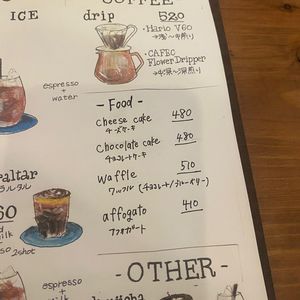 COFFEE
ICE
drip 520
・Hario V60
・CAFEC
Flower Dripper
espresso
+
water
- Food -
cheese cake 480
チーズケーキ
chocolate cake 480
チョコレートケーキ
waffle 510
ワッフル (チョコレート/ブルーベリー)
affogato 410
アフォガート
espresso
+
milk
- OTHER -